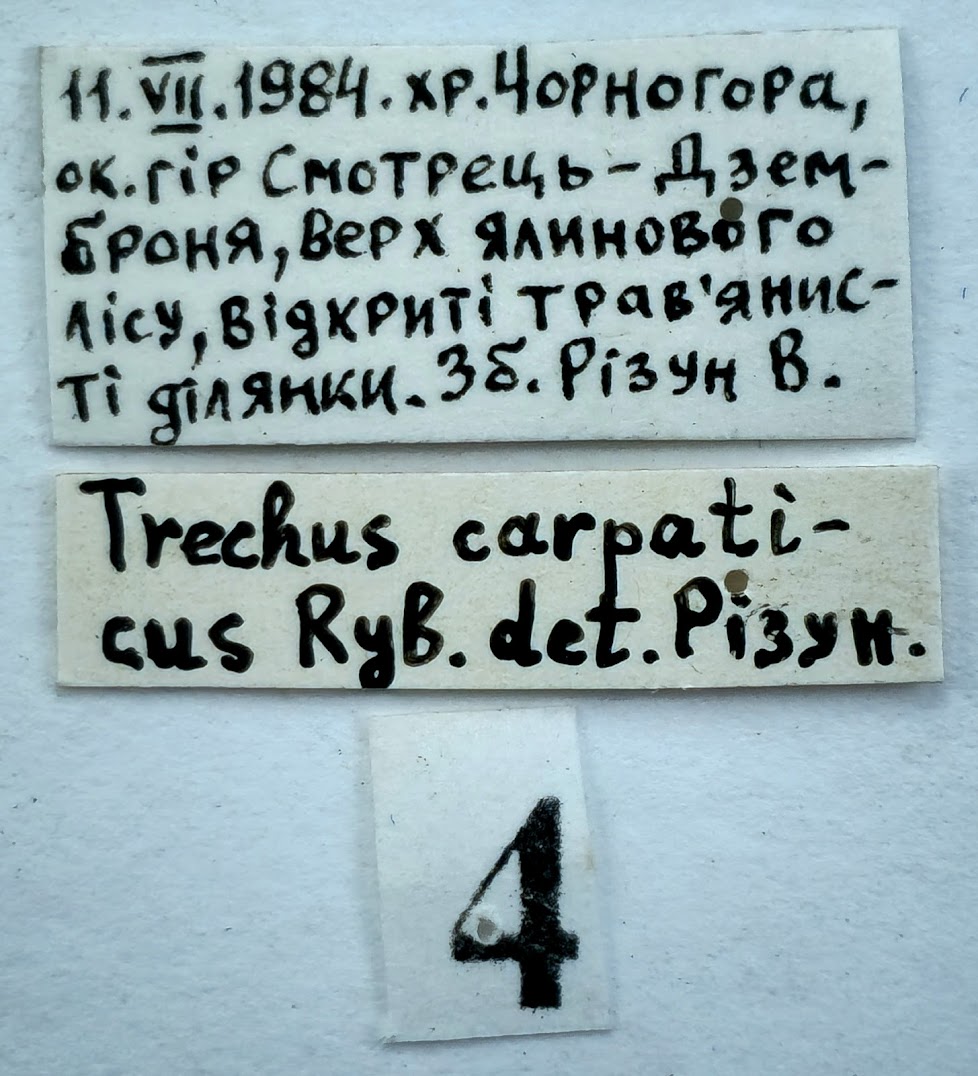 11.VII.1984. хр.Чорногора,
ок.гір Смотрець-Дзем-
броня, верх ялинового
лісу, відкриті трав'янис-
ті ділянки. Зб. Різун В.
Trechus carpati-
cus Ryb. det. Різун.
4